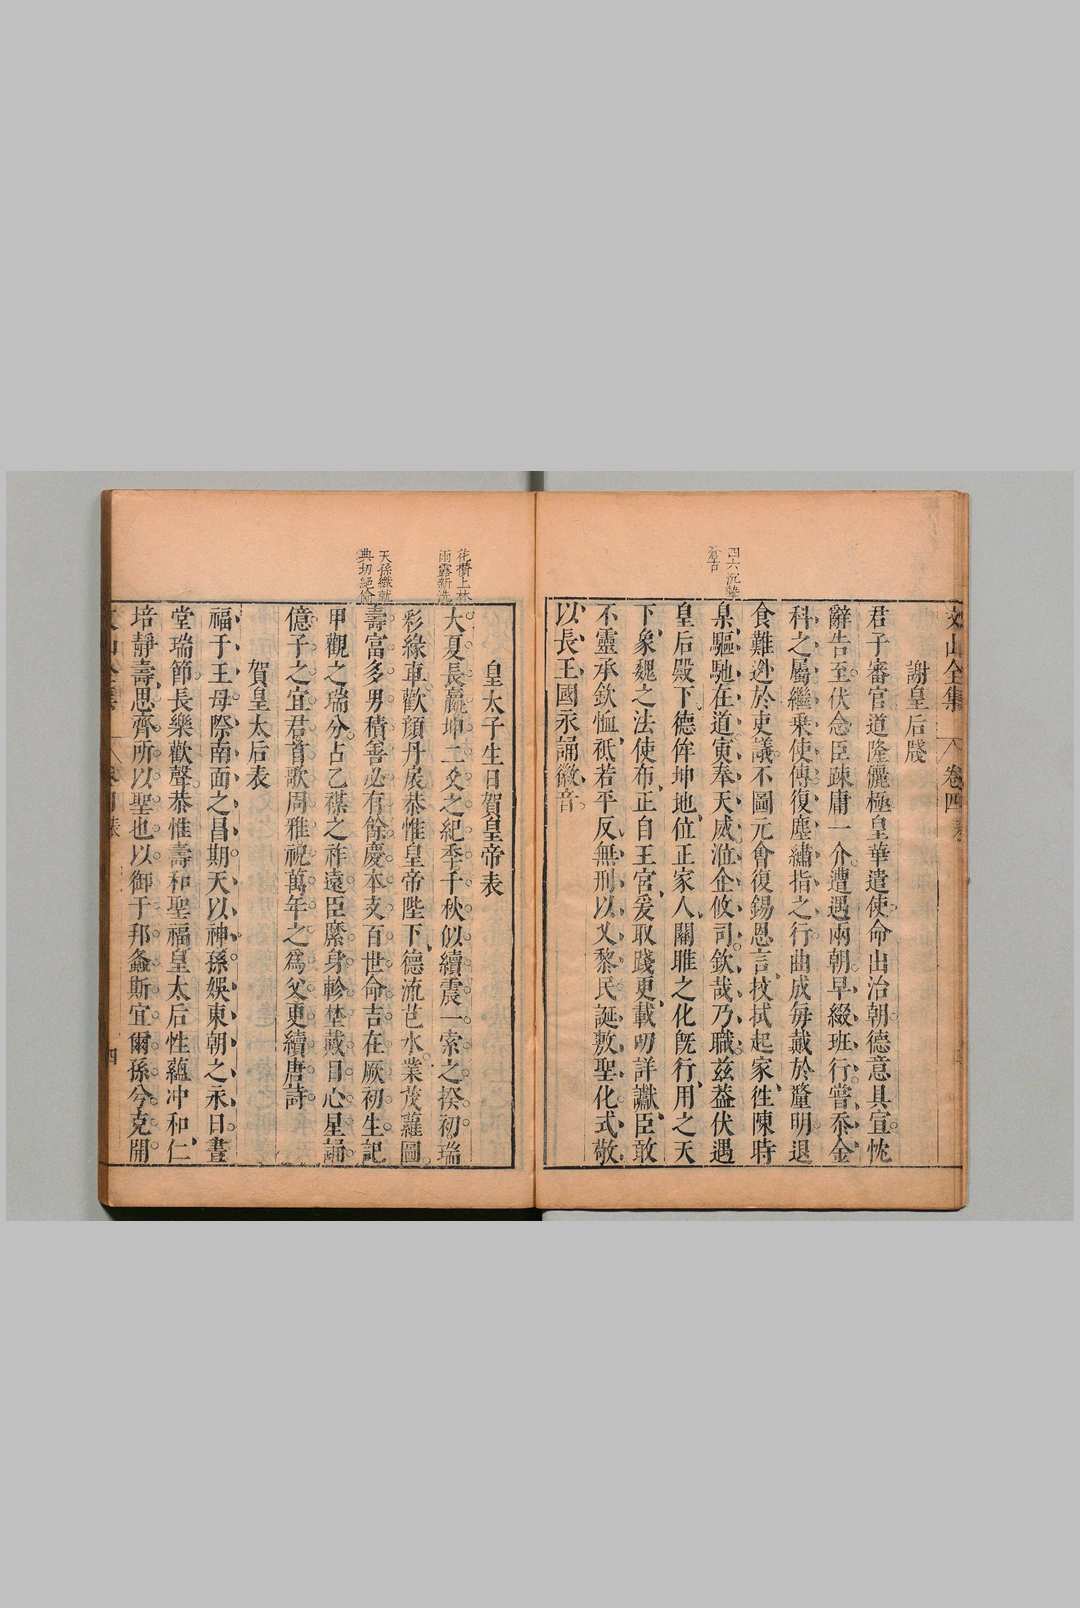 文山全集 卷四 表
謝皇后牋
君子審官道隆儷極皇華遣使命出治朝德意具宣忱
辭告至伏念臣疎庸一介遭遇兩朝早綴班行嘗忝金
科之屬繼乗使傳復塵繡指之行曲成每戴於釐明退
食難逃於吏議不圖元會復錫恩言抆拭起家徃陳時
臬驅馳在道寅奉天威涖企攸司欽哉乃職兹葢伏遇
皇后殿下德侔坤地位正家人關雎之化旣行用之天
下象魏之法使布正自王宮爰取踐更載叨詳讞臣敢
不靈承欽恤祇若平反無刑以乂黎民誕敷聖化式敬
以長王國永誦徽音
四六沉摯
皇太子生日賀皇帝表
大夏長嬴坤二爻之紀季千秋似續震一索之揆初瑞
彩緣車歡顔丹扆恭惟皇帝陛下德流芑水業茂蘿圖
壽富多男積善必有餘慶本支百世命吉在厥初生記
甲觀之瑞分占乙禖之祚遠臣縻身軫埜戴目心星誦
億子之宜君首歌周雅祝萬年之爲父更續唐詩
賀皇太后表
福于王母際南面之昌期天以神孫娛東朝之永日晝
堂瑞節長樂歡聲恭惟壽和聖福皇太后性蘊冲和仁
培靜壽思齊所以聖也以御于邦螽斯宜爾孫兮克開
花檟上林
雨露新洗
天孫織就
典切絕倫
四